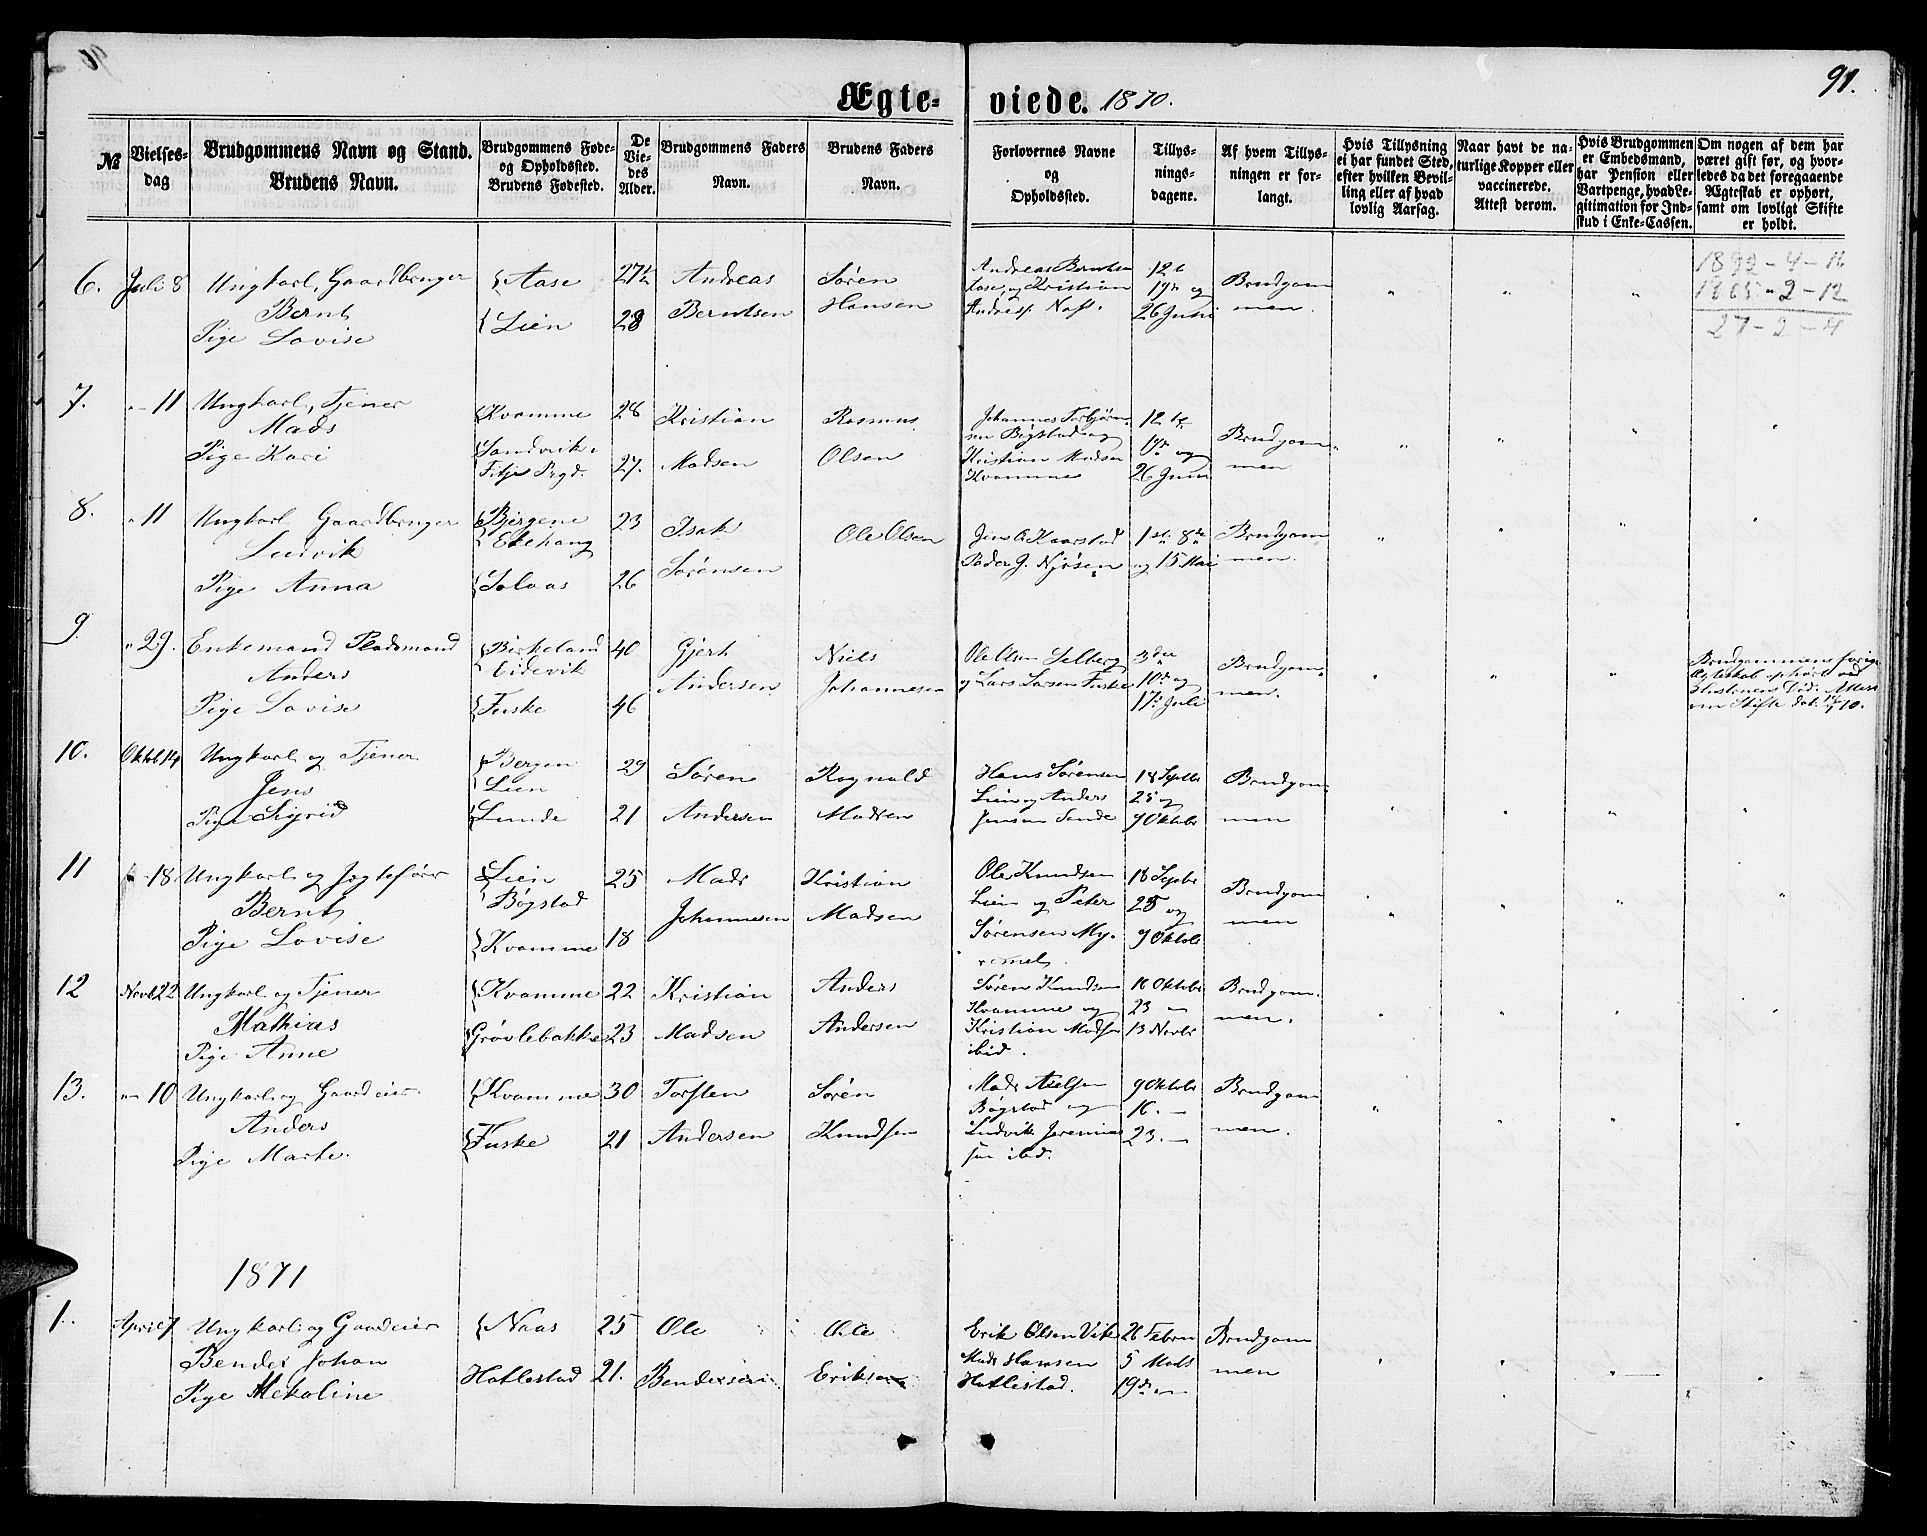 91.
Ægte= viede. 1870.
№
Vielses-
dag
Brudgommens Navn og Stand.
Brudens Navn.
Brudgommens Føde-
og Opholdssted.
Brudens Fødested.
De
Vie-
des
Alder.
Brudgommens Faders
Navn.
Brudens Faders
Navn.
Forlovernes Navne
og
Opholdssted.
Tillys-
nings-
dagene.
Af hvem Tillys-
ningen er for-
langt.
Hvis Tillysning
ei har fundet Sted,
efter hvilken Bevil-
ling eller af hvad
lovlig Aarsag.
Naar havt de na-
turlige Kopper eller
vaccinerede.
Attest derom.
Hvis Brudgommen
er Embedsmand,
har Pension eller
Vartpenge, hvad Le-
gitimation for Ind-
skud i Enke-Cassen.
Om nogen af dem har
været gift før, og hvor-
ledes da det foregaaende
Ægteskab er ophørt,
samt om lovligt Skifte
er holdt.
6. Juli 8 Ungkarl, Gaardbruger
Bernt
Pige Lovise
Aase
Lien
27½
28
Andreas
Berntsen
Søren
Hansen
Andreas Berntsen
Aase og Kristian
12te
19de og
26 Juni
Brudgom
men.
1892-4-16
1865-2-12
27-2-4
7. "-11 Ungkarl, Tjener
Mads
Pige Kari
Kvamme
Sandvik.
28
27.
Kristian
Madsen
Rasmus
Olsen
Johannes Torbjørn
sen Bøgstad og
Kristian Madsen
Kvamme
12te
19de og
26 Juni
Brudgom
men
8. " 11 Ungkarl Gaardbruger
Ludvik
Pige Anna
Bergene
Solaas
23
26
Isak
Sørensen
Ole Olsen
Jens O Kaarstad
Peder J. Njøsen
1ste 8de
og 15 Mai
Brudgom
men.
9 " 29. Enkemand Pladsmand
Anders
Pige Lovise
Birkeland
Eidevik
Fuske
40
46
Gjert
Andersen
Niels
Johannesen
Ole Olsen Solberg
og Lars Larsen Fuske
3die
10de og
17de Juli
Brudgom
men.
Brudgommens forige
Ægteskab ophørt ved
Hustruens Død. Attest
om Skifte dat.
10. Oktob 14 Ungkarl og Tjener
Jens
Pige Sigrid
Bergen
Lien
Lunde
29
21
Søren
Andersen
Ragnald
Madsen
Hans Sørensen
Lien og Anders
Jensen Sande
18 Septbr
25 og
9 Oktobr
Brudgom
men
11 - 18 Ungkarl og Jægtefører
Bernt
Pige Lovise
Lien
Bøgstad
Kvamme
25
18
Mads
Johannesen
Kristian
Madsen
Ole Knudsen
Lien og Peter
Sørensen My-
remel
18 Septbr
25 og
9 Oktobr
Brudgom
men
12 Novb 22 Ungkarl og Tjener
Mathias
Pige Anne
Kvamme
Grøvlebakke
22
23
Kristian
Madsen
Anders
Andersen
Søren Knudsen
Kvamme og
Kristian Madsen
ibid.
16 Oktobr
23 -
13 Novbr
Brudgom
men.
13. "- 10 Ungkarl og Gaardeier
Anders
Pige Marte.
Kvamme
Fuske
30
21
Torsten
Andersen
Søren
Knudsen
Mads Nielsen
Bøgstad og
Ludvik Jeremias
sen ibid.
9 Oktobr
16. -
23. -
Brudgom
men.
1871
1. April 7 Ungkarl og Gaardeier
Bendix Johan
Pige Mekoline
Naas
Hatlestad
25
21.
Ole
Bendixsen
Ole
Eriksen
Erik Olsen Vik
Mads Hansen
Hatlestad.
26 Febru
5 Mats
19de -
Brudgom
men